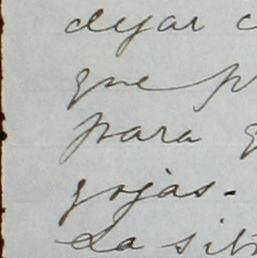 dejar c
que p
para q
gojas.
La sit